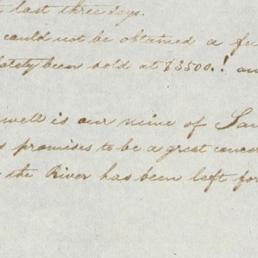 last three days.
could not be obtained a fe
lately been sold at $3500.! an
well is our mine of San
promises to be a great concer
the River has been left for